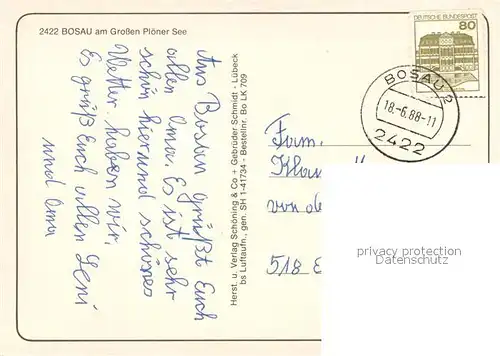 2422 BOSAU am Großen Plöner See
Aus Bosau grüßt Euch
allen Oma. Es ist sehr
schön hier und schönes
Wetter haben wir.
Es grüßt Euch allen Leni
und Oma
Herst. u. Verlag Schöning & Co + Gebrüder Schmidt - Lübeck
bs Luftaufn., gen. SH 1-41734 - Bestellnr. Bo LK 709
DEUTSCHE BUNDESPOST
80
BOSAU 2
18.-6.88-11
2422
Fam.
von
518 E
privacy protection
Datenschutz